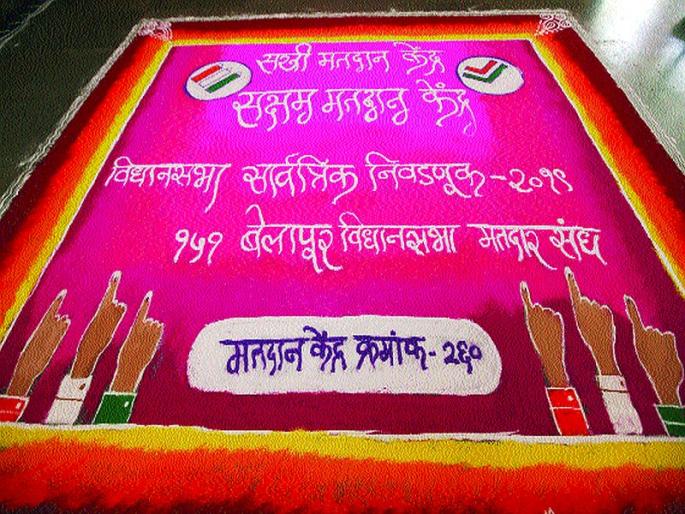 सखी मतदान केंद्र
सक्षम मतदान केंद्र
विधानसभा सार्वत्रिक निवडणूक - २०१९
१५१ बेलापूर विधानसभा मतदार संघ
मतदान केंद्र क्रमांक - २६०